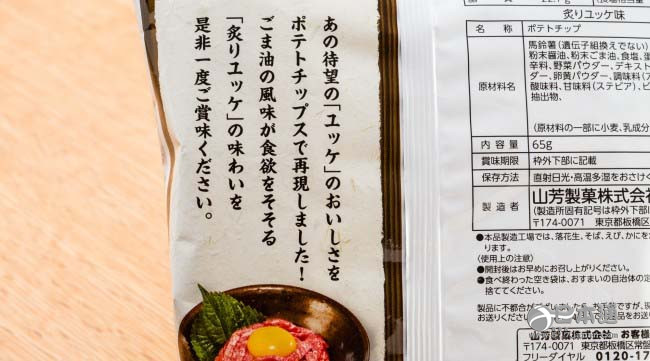 あの待望の「ユッケ」のおいしさを
ポテトチップスで再現しました！
ごま油の風味が食欲をそそる
「炙りユッケ」の味わいを
是非一度ご賞味ください。
炙りユッケ味
名称 ポテトチップ
原材料名 馬鈴薯（遺伝子組換えでない）
粉末醤油、粉末ごま油、食塩、
辛料、野菜パウダー、デキスト
ダー、卵黄パウダー、調味料（ア
酸味料、甘味料（ステビア）、ビ
抽出物、
（原材料の一部に小麦、乳成分
内容量 65g
賞味期限 枠外下部に記載
保存方法 直射日光・高温多湿をおさけく
製造者 山芳製菓株式会社
（製造所固有記号は枠外下部
〒174-0071 東京都板橋区
●本品製造工場では、落花生、そば、えび、かにを
ります。
（使用上の注意）
●開封後はお早めにお召し上がりください。
●食べ終わった空き袋は、おすまいの自治体の定
捨ててください。
製品に不都合が
お送りください
山芳製菓株式会社 お客様
〒174-0071 東京都板橋区常盤
フリーダイヤル 0120-17